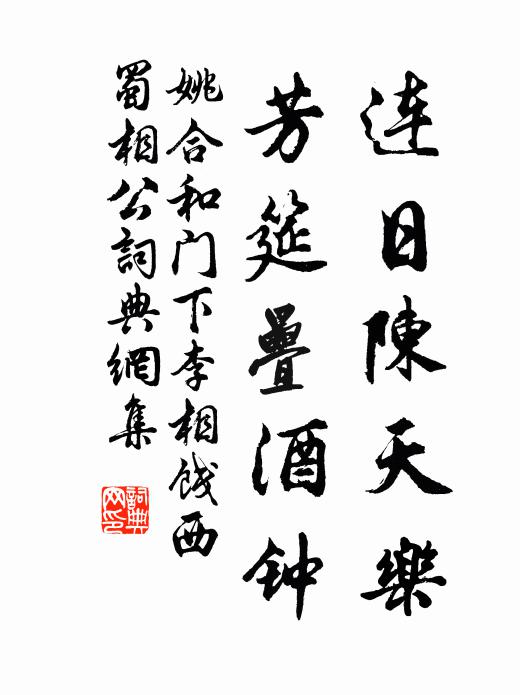 连日陳天樂
芳筵疊酒钟
姚合和门下李相饯西
蜀相公詞典網集
詞典
网印